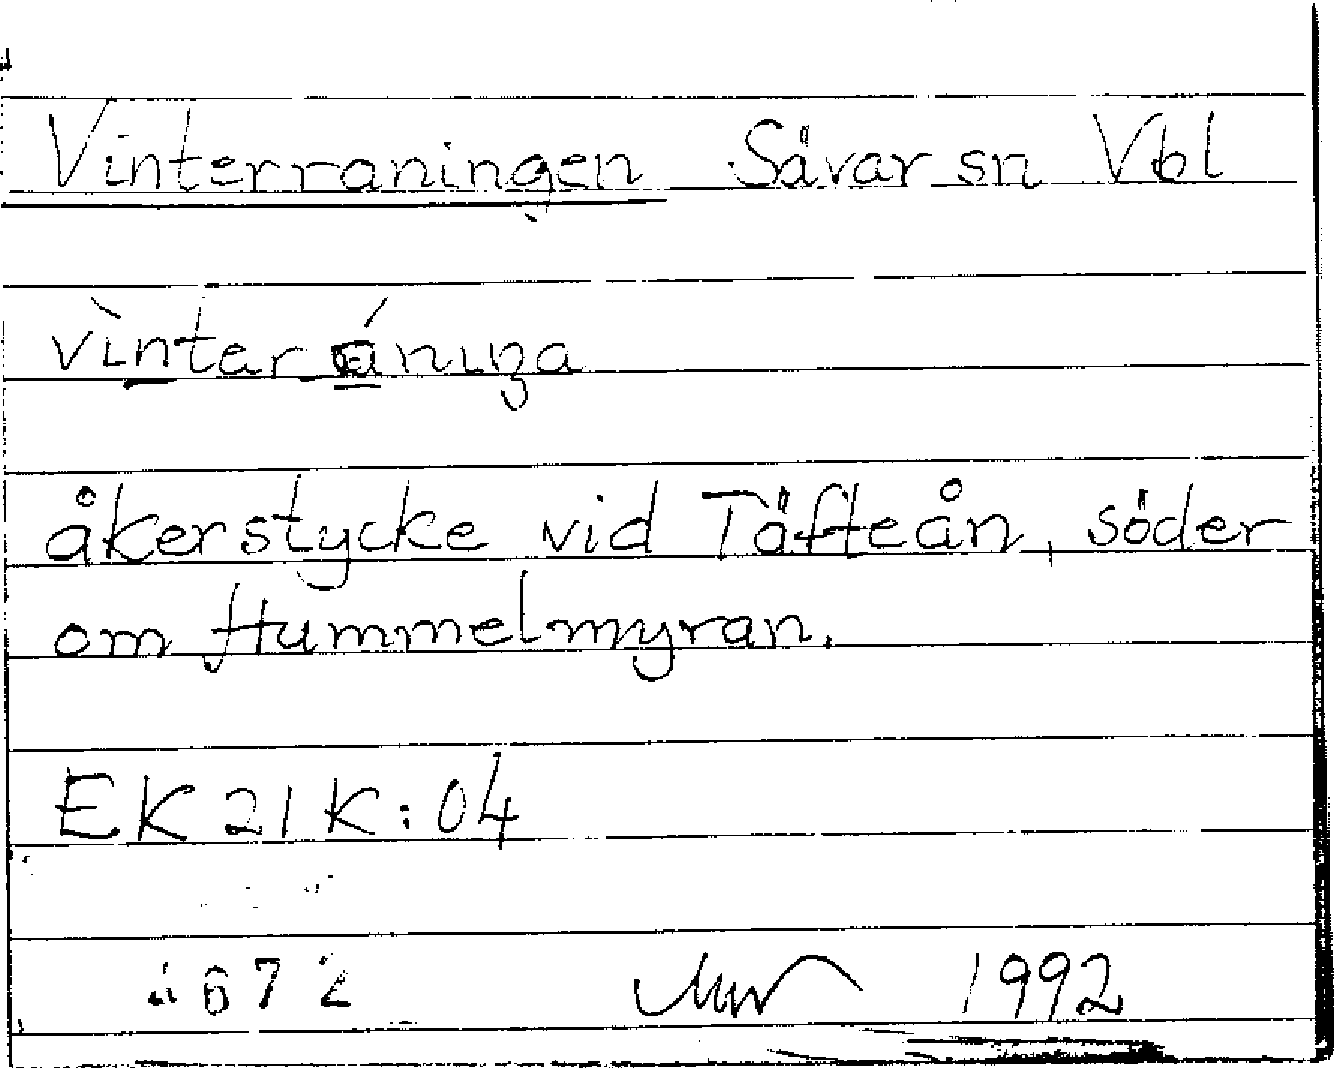 Vinterraningen Sävar sn Vbl
åkerstycke vid Täfteån, söder
om Hummelmyran.
EK 21 K: 04
672
1992